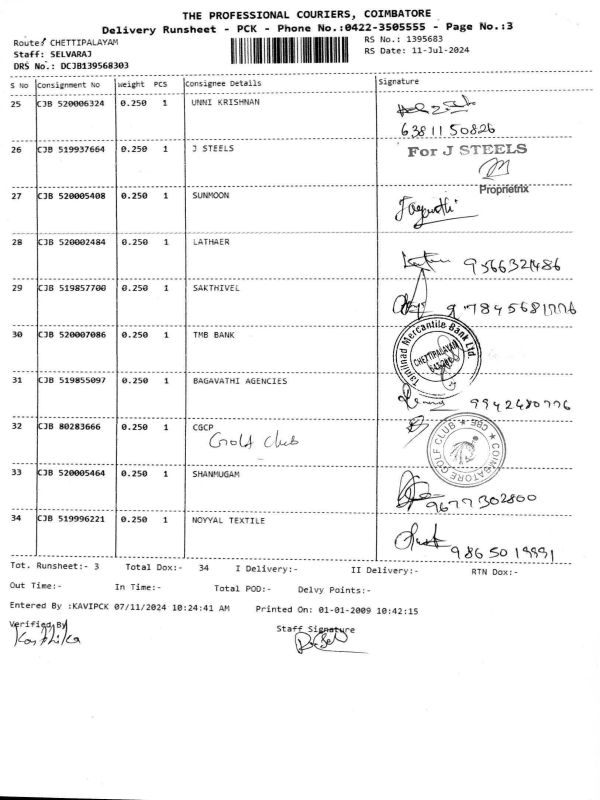 THE PROFESSIONAL COURIERS, COIMBATORE
Delivery Runsheet - PCK - Phone No.:0422-3505555 - Page No.:3
Route: CHETTIPALAYAM RS No.: 1395683
Staff: SELVARAJ RS Date: 11-Jul-2024
DRS No.: DCJB139568303
S No Consignment No Weight PCS Consignee Details Signature
25 CJB 520006324 0.250 1 UNNI KRISHNAN
6381150826
26 CJB 519937664 0.250 1 J STEELS For J STEELS
Proprietrix
27 CJB 520005408 0.250 1 SUNMOON
28 CJB 520002484 0.250 1 LATHAER
9566321486
29 CJB 519857700 0.250 1 SAKTHIVEL
30 CJB 520007086 0.250 1 TMB BANK Tamilnad Mercantile Bank Ltd. CHETTIPALAYAM
31 CJB 519855097 0.250 1 BAGAVATHI AGENCIES
9942480776
32 CJB 80283666 0.250 1 CGCP COIMBATORE GOLF CLUB * CBE *
Gold Club
33 CJB 520005464 0.250 1 SHANMUGAM
9677302800
34 CJB 519996221 0.250 1 NOYYAL TEXTILE
Tot. Runsheet:- 3 Total Dox:- 34 I Delivery:- II Delivery:- RTN Dox:-
Out Time:- In Time:- Total POD:- Delvy Points:-
Entered By :KAVIPCK 07/11/2024 10:24:41 AM Printed On: 01-01-2009 10:42:15
Verified By Staff Signature